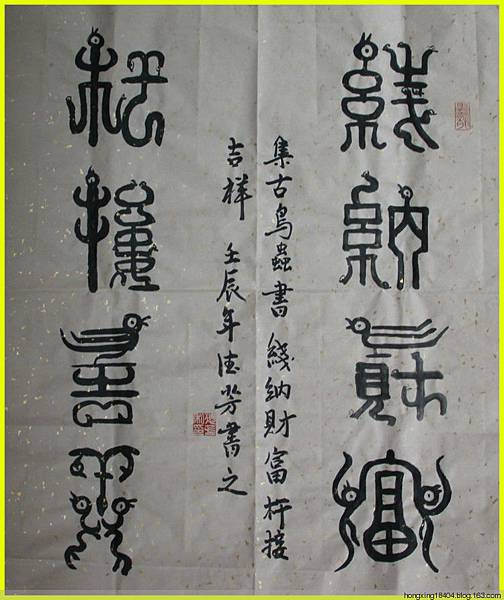 綫納財富
集古鳥蟲書 綫納財富 杆接
吉祥 壬辰年 芳書之
杆接吉祥
hongxing18404.blog.163.com